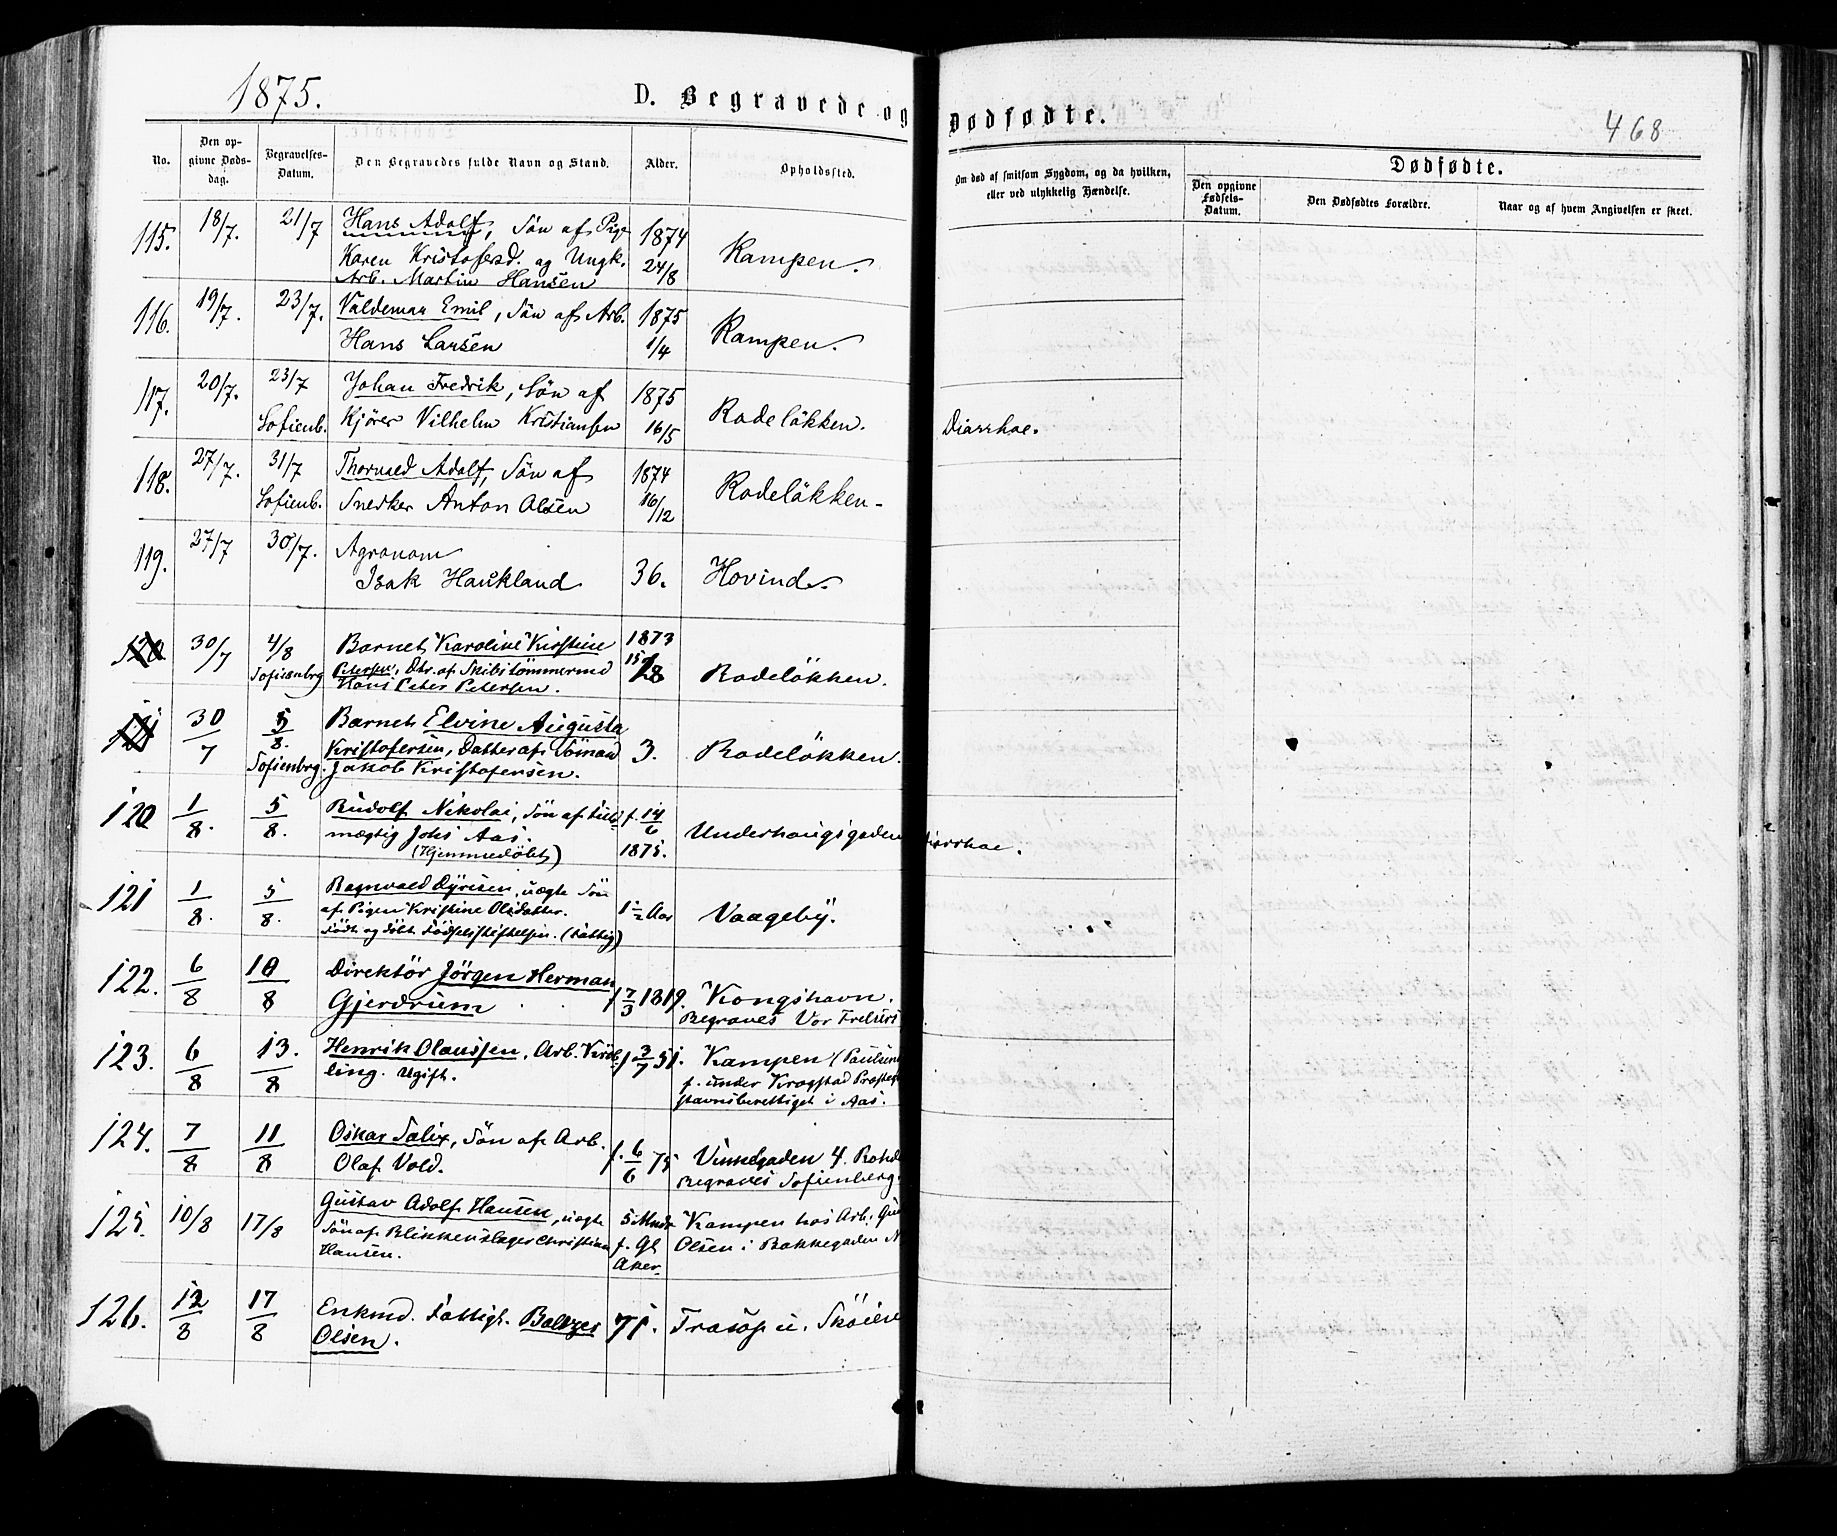 1875.
D. Begravede og Dødfødte.
468
No.
Den opgivne Dødsdag.
Begravelses-Datum.
Den Begravedes fulde Navn og Stand.
Alder.
Opholdssted.
Om død af smitsom Sygdom, og da hvilken, eller ved ulykkelig Hændelse.
Dødfødte.
Den opgivne Fødsels-Datum.
Den Dødfødtes Forældre.
Naar og af hvem Angivelsen er skeet.
115. 18/7. 21/7 Hans Adolf, Søn af Pige 1874
Karen Kristofersd. og Ungk. 24/8 Kampen.
Arb. Martin Hansen
116. 19/7. 23/7. Valdemar Emil, Søn af Arb. 1875
Hans Larsen 1/4 Kampen.
117. 20/7. 23/7 Johan Fredrik, Søn af 1875
Sofienb. Kjører Vilhelm Kristiansen 16/5 Rodeløkken. Diarrhoe.
118. 27/7. 31/7 Thorvald Adolf, Søn af 1874
Sofienb. Snedker Anton Olsen 16/12 Rodeløkken-
119. 27/7 30/7. Agronom
Isak Haukland 36. Hovind.
120 30/7 4/8 Barnet Karoline Kirstine 1873
Sofienbrg Petersen, Dtr. af Skibstømmermd Rodeløkken.
Hans Peter Petersen.
121 30/7 5/8. Barnet Elvine Augusta
Kristofersen, Datter af Sømand 3. Rodeløkken.
Sofienbrg. Jakob Kristofersen.
120 1/8. 5/8. Rudolf Nikolai, Søn af Fuld- f. 14/6
mægtig Johs Aas. 1875. Underhaugsgaden Diarrhoe.
(Hjemmedøbt)
121 1/8. 5/8. Ragnvald Dyresen, uægte Søn
af Pigen Kristine Olsdatter. 1 1/2 Aar Vaageby.
Født og døbt Fødselsstiftelsen. (Fattig)
122. 6/8 10/8 Direktør Jørgen Herman
Gjerdrum f 7/3 1819. Kongshavn.
Begraves Vor Frelsers
123. 6/8 13./8 Henrik Olaussen, Arb. f 3/7 51. Kampen (
ling. Ugift. f. under Kragstad Præsteg
stavnsberettiget i Aas.
124. 7/8 11/8 Oskar Salix, Søn af Arb.
Olaf Vold. f. 6/6 75 Vinkelgaden 4. Rodel
Begraves Sofienberg.
125. 10/8 17/8 Gustav Adolf Hansen, uægte 5 Mndr Kampen hos Arb. Gu
Søn af Blikkenslager Christian f. Gl. Olsen i Bakkegaden N
Hansen. Aker.
126. 12/8 17/8 Enkmd. Fattigl. Baltzer 71. Frasøp u. Skøien
Olsen.